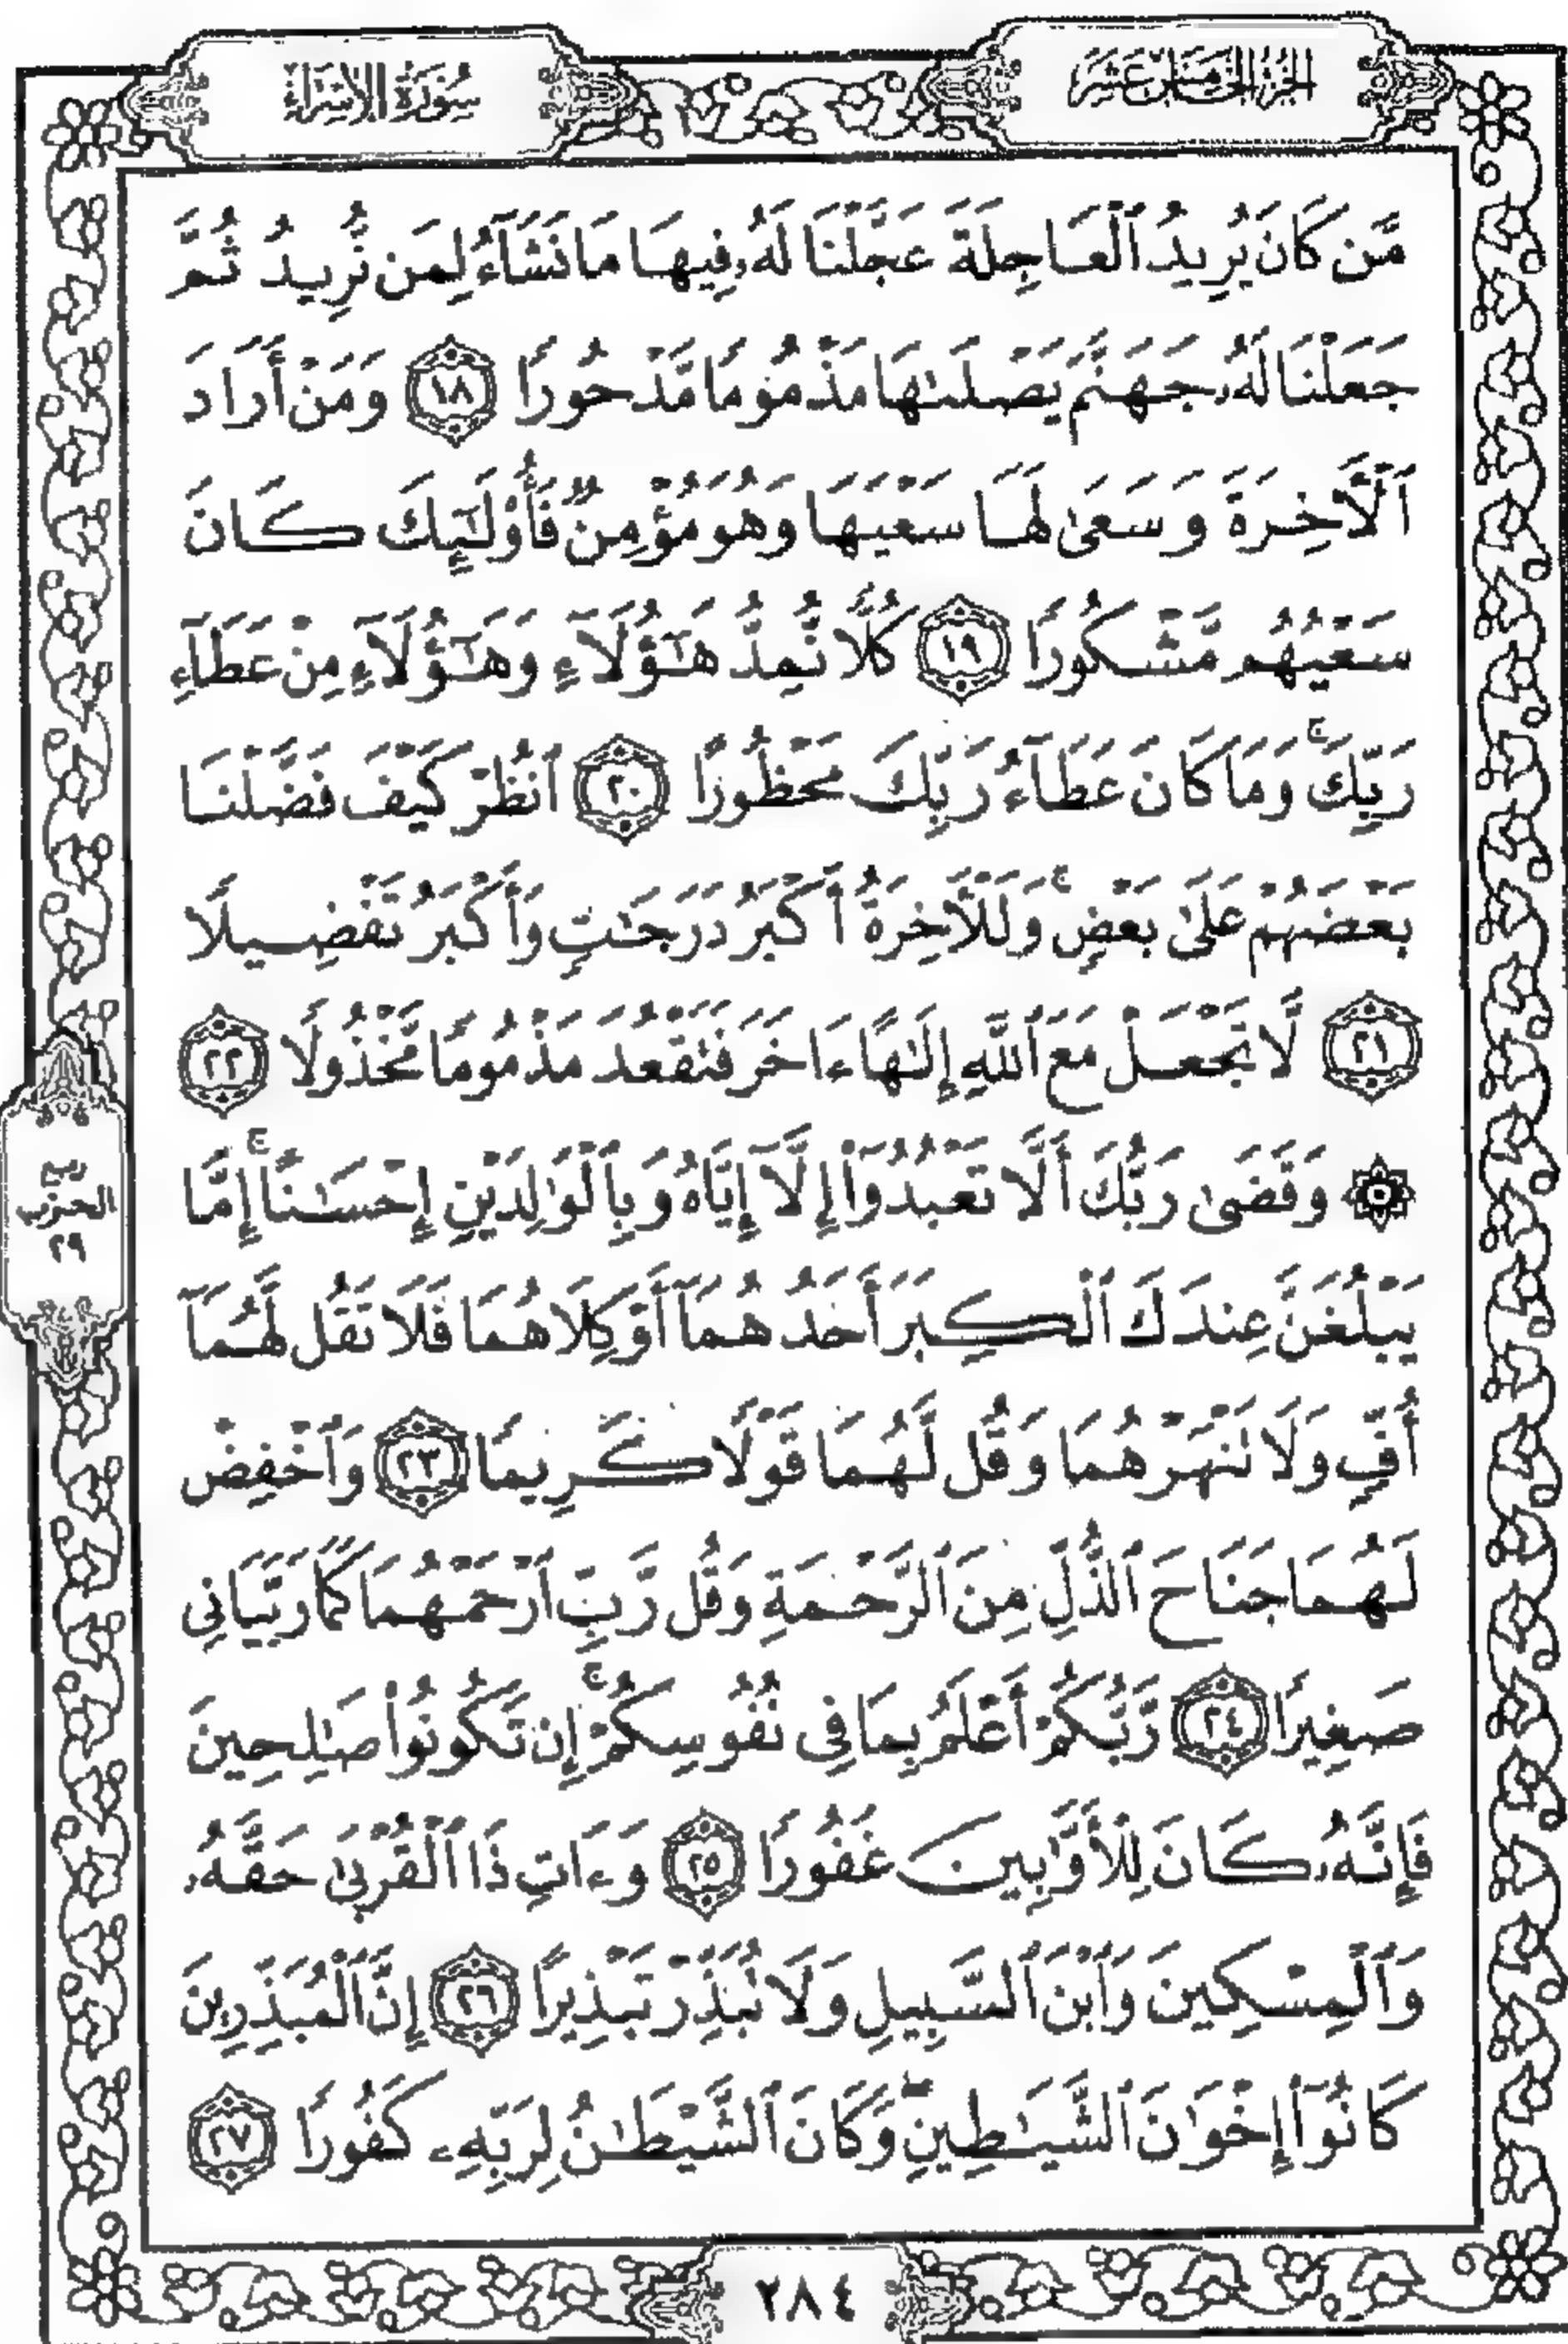 الجزء الخامس عشر
سورة الإسراء
مَّن كَانَ يُرِيدُ ٱلْعَاجِلَةَ عَجَّلْنَا لَهُۥ فِيهَا مَا نَشَآءُ لِمَن نُّرِيدُ ثُمَّ
جَعَلْنَا لَهُۥ جَهَنَّمَ يَصْلَىٰهَا مَذْمُومًا مَّدْحُورًا ١٨ وَمَنْ أَرَادَ
ٱلْأَخِرَةَ وَسَعَىٰ لَهَا سَعْيَهَا وَهُوَ مُؤْمِنٌ فَأُو۟لَٰٓئِكَ كَانَ
سَعْيُهُم مَّشْكُورًا ١٩ كُلًّا نُّمِدُّ هَٰٓؤُلَآءِ وَهَٰٓؤُلَآءِ مِنْ عَطَآءِ
رَبِّكَ ۚ وَمَا كَانَ عَطَآءُ رَبِّكَ مَحْظُورًا ٢٠ ٱنظُرْ كَيْفَ فَضَّلْنَا
بَعْضَهُمْ عَلَىٰ بَعْضٍ ۚ وَلَلْأَخِرَةُ أَكْبَرُ دَرَجَٰتٍ وَأَكْبَرُ تَفْضِيلًا
٢١ لَّا تَجْعَلْ مَعَ ٱللَّهِ إِلَٰهًا ءَاخَرَ فَتَقْعُدَ مَذْمُومًا مَّخْذُولًا ٢٢
۞ وَقَضَىٰ رَبُّكَ أَلَّا تَعْبُدُوٓا۟ إِلَّآ إِيَّاهُ وَبِٱلْوَٰلِدَيْنِ إِحْسَٰنًا ۚ إِمَّا
يَبْلُغَنَّ عِندَكَ ٱلْكِبَرَ أَحَدُهُمَآ أَوْ كِلَاهُمَا فَلَا تَقُل لَّهُمَآ
أُفٍّ وَلَا تَنْهَرْهُمَا وَقُل لَّهُمَا قَوْلًا كَرِيمًا ٢٣ وَٱخْفِضْ
لَهُمَا جَنَاحَ ٱلذُّلِّ مِنَ ٱلرَّحْمَةِ وَقُل رَّبِّ ٱرْحَمْهُمَا كَمَا رَبَّيَانِى
صَغِيرًا ٢٤ رَّبُّكُمْ أَعْلَمُ بِمَا فِى نُفُوسِكُمْ ۚ إِن تَكُونُوا۟ صَٰلِحِينَ
فَإِنَّهُۥ كَانَ لِلْأَوَّٰبِينَ غَفُورًا ٢٥ وَءَاتِ ذَا ٱلْقُرْبَىٰ حَقَّهُۥ
وَٱلْمِسْكِينَ وَٱبْنَ ٱلسَّبِيلِ وَلَا تُبَذِّرْ تَبْذِيرًا ٢٦ إِنَّ ٱلْمُبَذِّرِينَ
كَانُوٓا۟ إِخْوَٰنَ ٱلشَّيَٰطِينِ ۖ وَكَانَ ٱلشَّيْطَٰنُ لِرَبِّهِۦ كَفُورًا ٢٧
ربع
الحزب
٢٩
٢٨٤